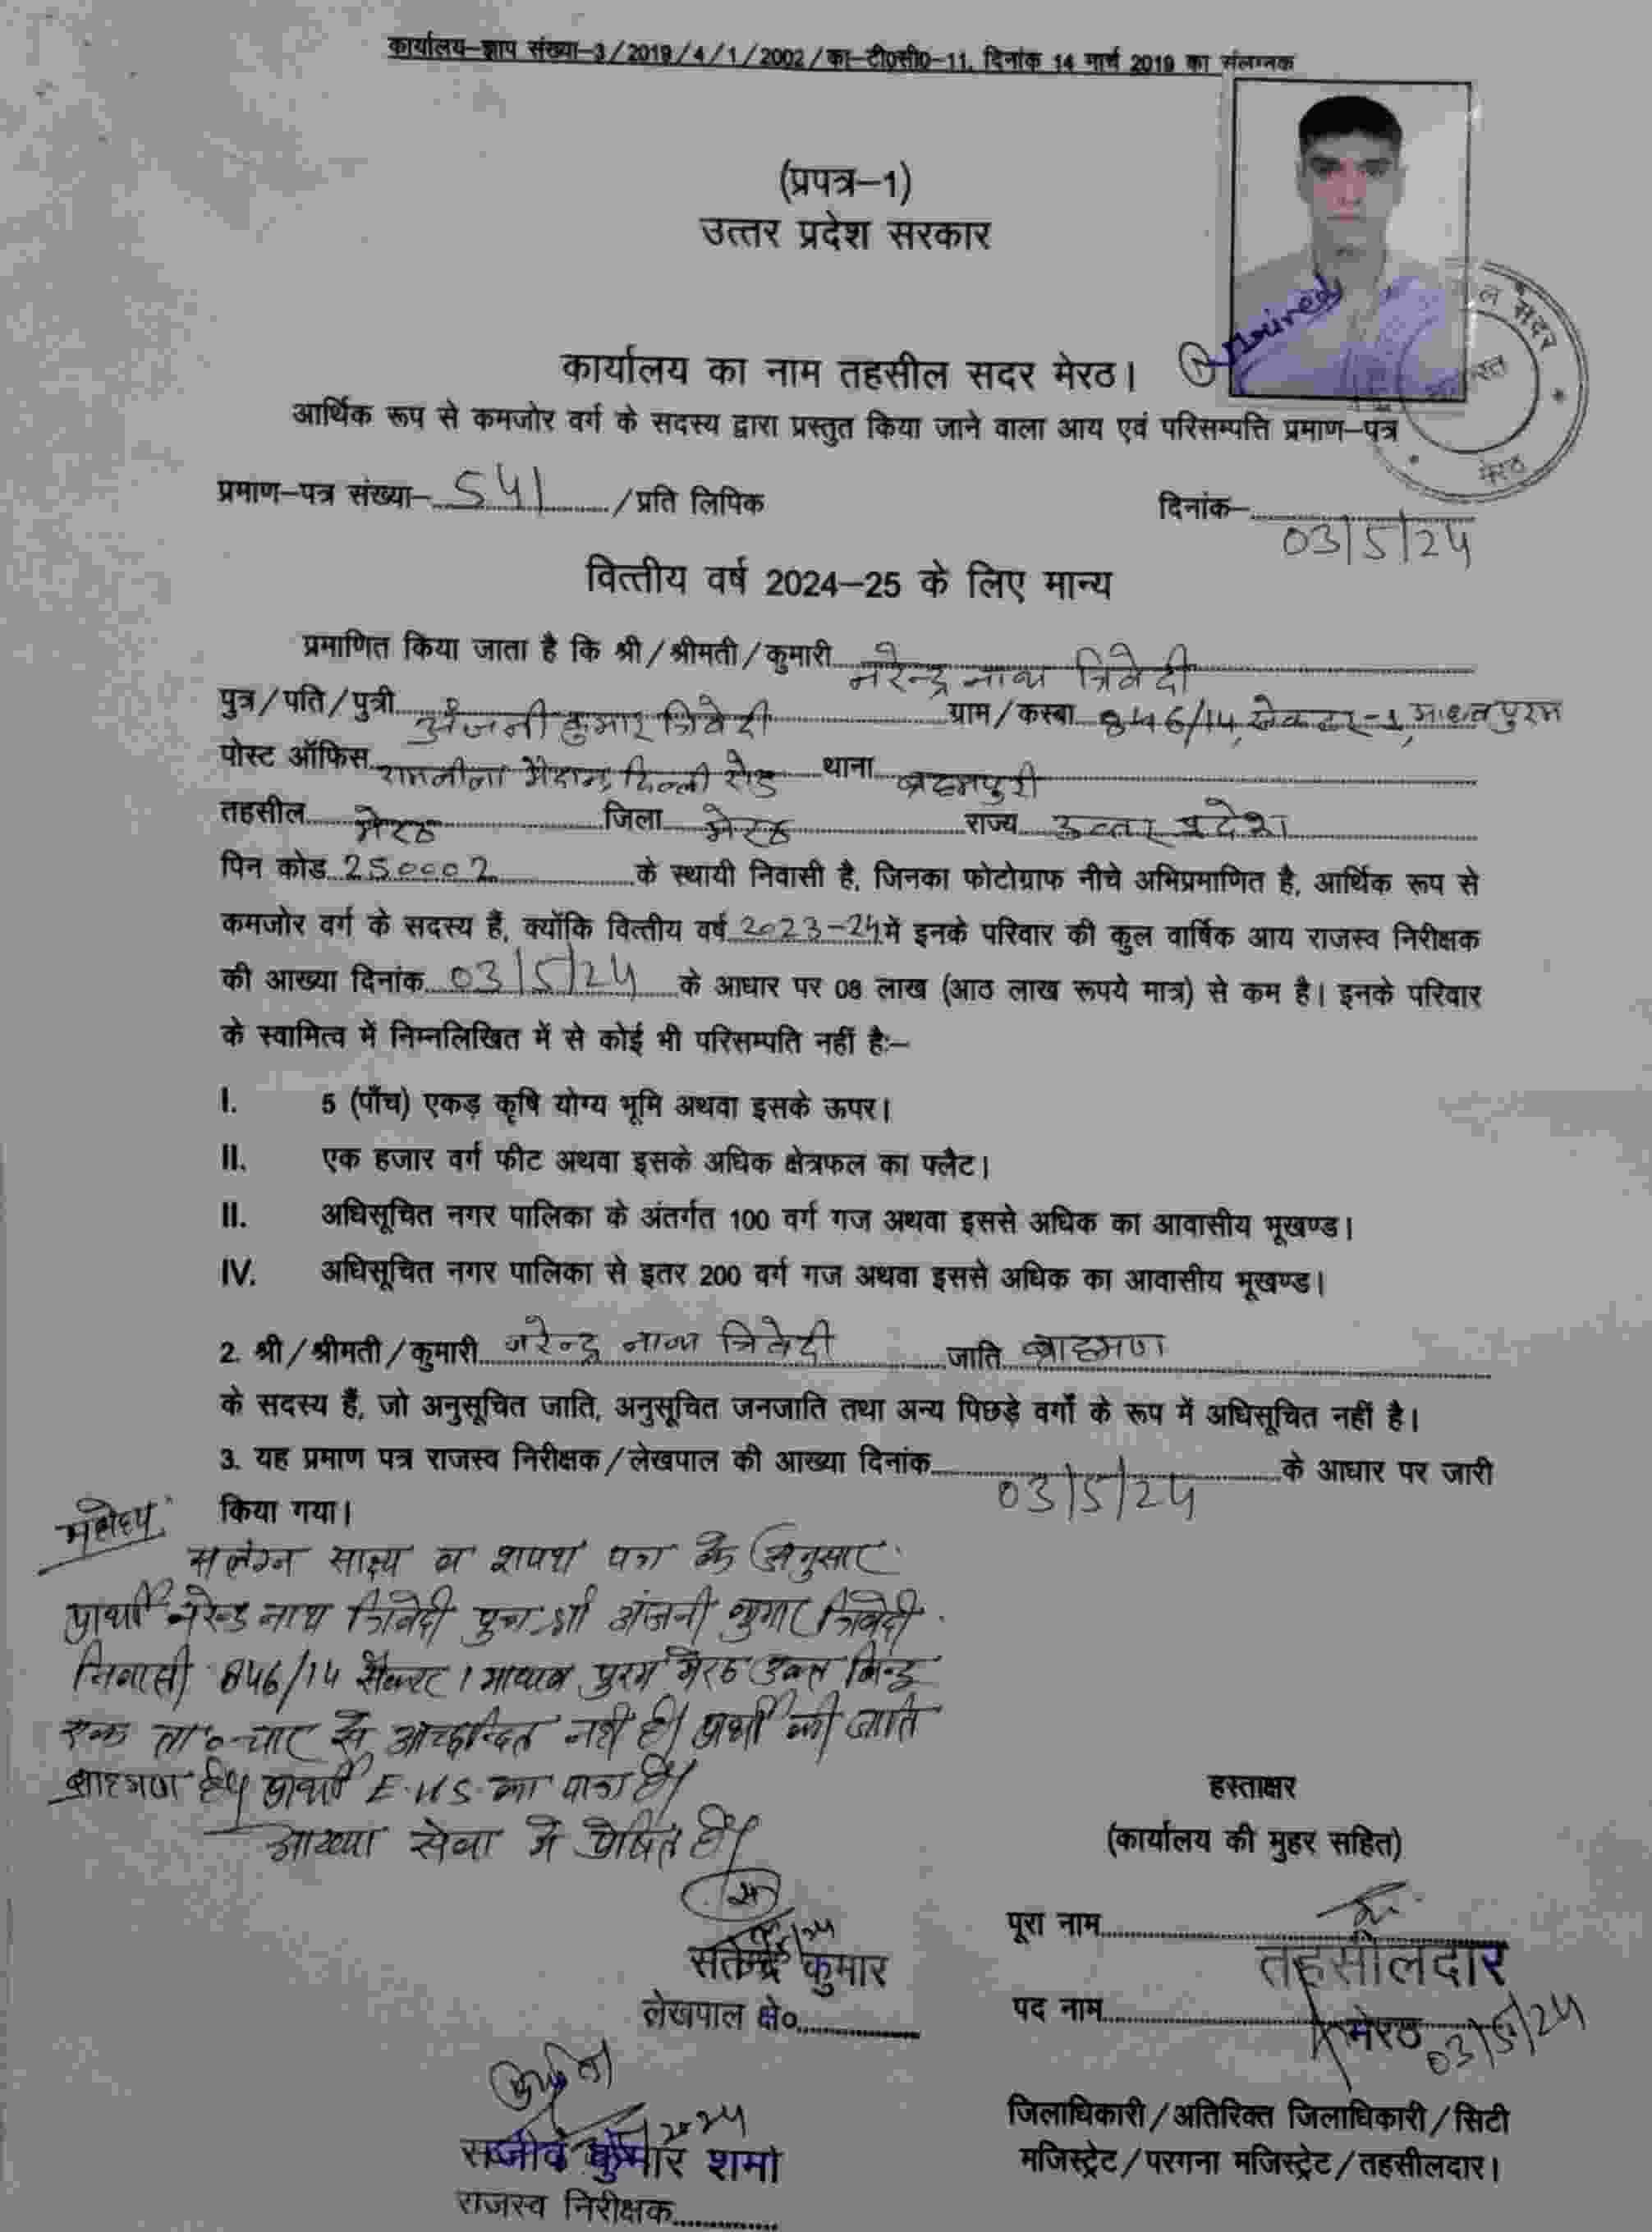 कार्यालय-ज्ञाप संख्या-3/2019/4/1/2002/का-टी0सी0-11, दिनांक 14 मार्च 2019 का संलग्नक
(प्रपत्र-1)
उत्तर प्रदेश सरकार
कार्यालय का नाम तहसील सदर मेरठ।
आर्थिक रूप से कमजोर वर्ग के सदस्य द्वारा प्रस्तुत किया जाने वाला आय एवं परिसम्पत्ति प्रमाण-पत्र
सदर
मेरठ
प्रमाण-पत्र संख्या- 541 /प्रति लिपिक दिनांक- 03/5/24
वित्तीय वर्ष 2024-25 के लिए मान्य
प्रमाणित किया जाता है कि श्री/श्रीमती/कुमारी नरेन्द्र नाथ त्रिवेदी
पुत्र/पति/पुत्री अंजनी कुमार त्रिवेदी ग्राम/कस्बा 846/14, सेक्टर-1, माधवपुरम
पोस्ट ऑफिस रामलीला मैदान दिल्ली रोड थाना ब्रह्मपुरी
तहसील मेरठ जिला मेरठ राज्य उत्तर प्रदेश
पिन कोड 250002 के स्थायी निवासी है, जिनका फोटोग्राफ नीचे अभिप्रमाणित है, आर्थिक रूप से
कमजोर वर्ग के सदस्य हैं, क्योंकि वित्तीय वर्ष 2023-24 में इनके परिवार की कुल वार्षिक आय राजस्व निरीक्षक
की आख्या दिनांक 03/5/24 के आधार पर 08 लाख (आठ लाख रूपये मात्र) से कम है। इनके परिवार
के स्वामित्व में निम्नलिखित में से कोई भी परिसम्पति नहीं है:-
I. 5 (पाँच) एकड़ कृषि योग्य भूमि अथवा इसके ऊपर।
II. एक हजार वर्ग फीट अथवा इसके अधिक क्षेत्रफल का फ्लैट।
II. अधिसूचित नगर पालिका के अंतर्गत 100 वर्ग गज अथवा इससे अधिक का आवासीय भूखण्ड।
IV. अधिसूचित नगर पालिका से इतर 200 वर्ग गज अथवा इससे अधिक का आवासीय भूखण्ड।
2. श्री/श्रीमती/कुमारी नरेन्द्र नाथ त्रिवेदी जाति ब्राह्मण
के सदस्य हैं, जो अनुसूचित जाति, अनुसूचित जनजाति तथा अन्य पिछड़े वर्गों के रूप में अधिसूचित नहीं है।
3. यह प्रमाण पत्र राजस्व निरीक्षक/लेखपाल की आख्या दिनांक 03/5/24 के आधार पर जारी
किया गया।
महोदय
सलंग्न साक्ष्य व शपथ पत्र के अनुसार
प्रार्थी नरेन्द्र नाथ त्रिवेदी पुत्र श्री अंजनी कुमार त्रिवेदी
निवासी 846/14 सैक्टर 1 माधव पुरम मेरठ उक्त बिन्दु
एक ता0 चार से आच्छादित नही है। प्रार्थी की जाति
ब्राह्मण है। प्रार्थी E.W.S. का पात्र है।
आख्या सेवा मे प्रेषित है।
सतेन्द्र कुमार
लेखपाल क्षे०
संजीव कुमार शर्मा
राजस्व निरीक्षक
हस्ताक्षर
(कार्यालय की मुहर सहित)
पूरा नाम
तहसीलदार
पद नाम
मेरठ 03/5/24
जिलाधिकारी/अतिरिक्त जिलाधिकारी/सिटी
मजिस्ट्रेट/परगना मजिस्ट्रेट/तहसीलदार।